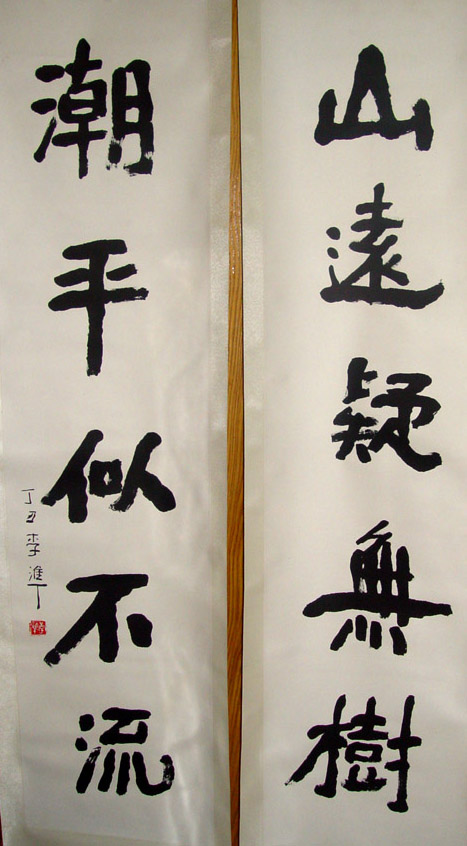 山遠疑無樹
潮平似不流
丁丑李準